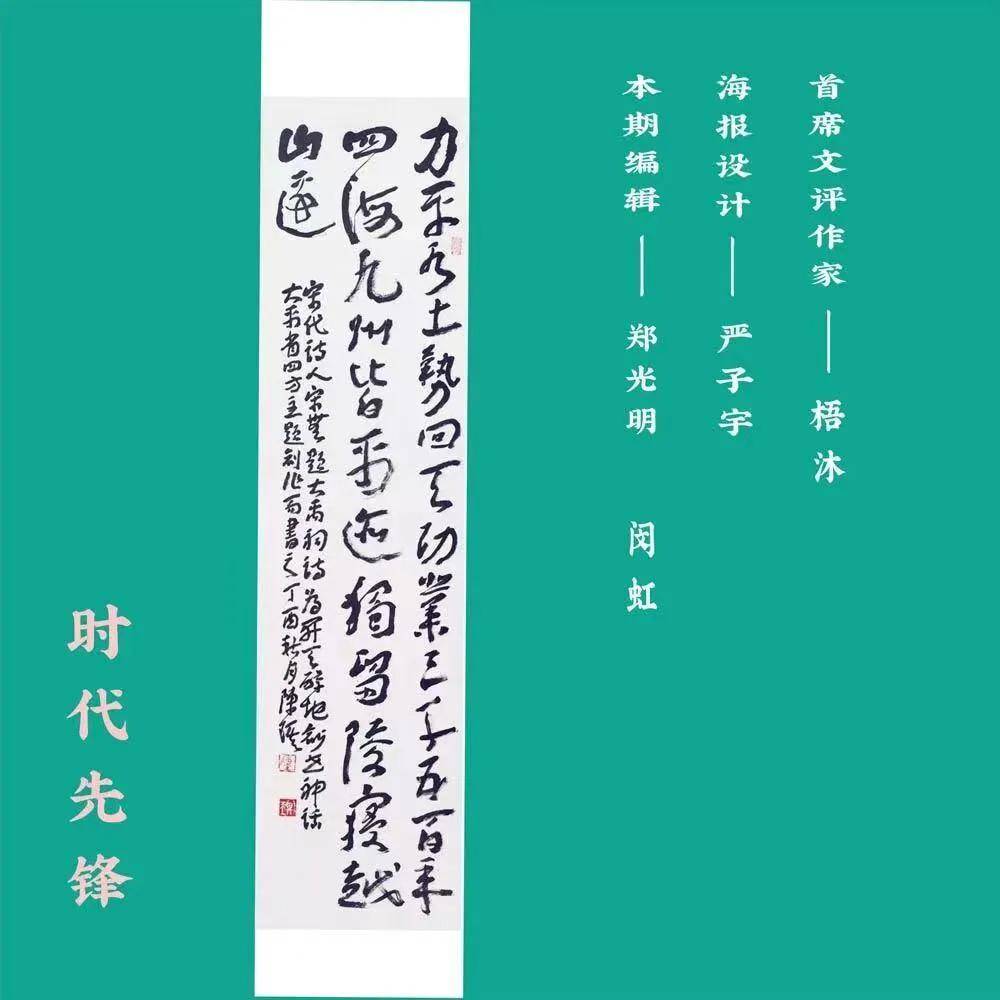 首席文评作家——梧沐
海报设计——严子宇
本期编辑——郑光明 闵虹
力平水土勢回天功業三千五百年
四海九州皆禹迹獨留陵寢越
山邊
宋代詩人宋無題大禹祠詩為開天辟地創世神話
大禹省四方主題創作而書之丁酉秋月陳
时代先锋